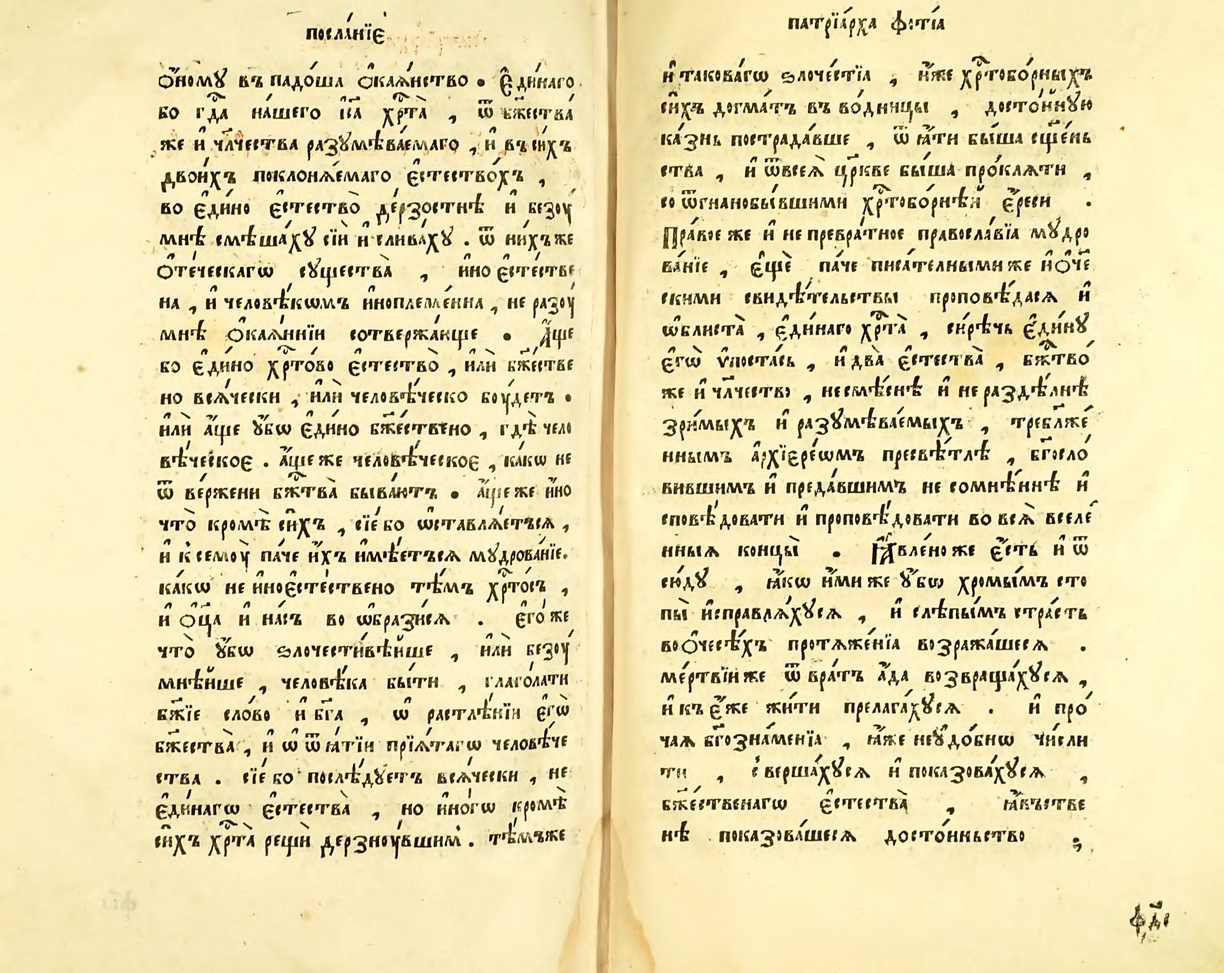 посла́нїе
ѻ҆́ному въ падо́ша ѻ҆кая́нство . є҆ди́наго
бо гдⷭ҇а на́шего і҆и҃са хрⷭ҇та̀ , ѿ бж҃ества̀
же и҆ чл҃чества разумѣ́ваемаго , и҆ въ си́хъ
двои́хъ покланѧ́емаго є҆стество́хъ ,
во є҆ди́но є҆стество̀ де́рзостнѣ и҆ безоу́
мнѣ смѣша́ху сїѝ и҆ слива́ху . ѿ ни́хъ же
ѻ҆те́ческагѡ существа̀ , и҆но є҆сте́стве
на , и҆ человѣ́кѡмъ и҆ноплеме́нна , не разоу́
мнѣ ѻ҆кая́ннїи сотвержа́юще . а҆́ще
бо є҆ди́но хрⷭ҇то́во є҆стество̀ , и҆лѝ бж҃е́стве
но всѧ́чески , и҆лѝ человѣ́ческо боу́детъ .
и҆лѝ а҆́ще ᲂу҆́бѡ є҆ди́но бж҃е́ствено , гдѣ̀ чело
вѣ́ческоє . а҆́ще же человѣ́ческоє , ка́кѡ не
ѿ ве́ржени бж҃тва̀ быва́ютъ . а҆́ще же и҆́но
что̀ кромѣ̀ си́хъ , сїе́ бо ѡ҆ставлѧ́етьсѧ ,
и҆ к семоу̀ па́че и҆́хъ и҆мѣ́етьсѧ мудрова́нїе.
ка́кѡ не и҆ноє҆сте́ствено тѣ́мъ хрⷭ҇то́съ ,
и҆ ѻ҆ц҃а̀ и҆ на́съ во ѡ҆брази́сѧ . є҆го́ же
что̀ ᲂу҆́бѡ ѕлочести́вѣйше , и҆лѝ безоу́
мнѣ́йше , человѣ́ка бы́ти , глаго́лати
бж҃їе сло́во и҆ бг҃а , ѡ҆ растлѣ́нїи є҆гѡ̀
бж҃ества̀ , и҆ ѡ҆ ѿѧ́тїи прїѧ́тагѡ человѣ́че
ства . сїе́ бо послѣ́дуетъ всѧ́чески , не
є҆ди́нагѡ є҆стества̀ , но и҆но́гѡ кромѣ̀
си́хъ хрⷭ҇та̀ рещѝ дерзноу́вшим . тѣ́мъже
патрїа́рха фѡтїа
и҆ таковагѡ ѕлоче́стїѧ , и҆́же хрⷭ҇тобо́рныхъ
си́хъ догма́тъ въ во́дницы , досто́йную
ка́знь пострада́вше , ѿ ꙗ҆ти бы́ша сщ҃е́нь
ства , и҆ ѿ всеѧ̀ цр҃кве бы́ша про́клѧти ,
со ѿгнанобы́вшими хрⷭ҇тобо́рнѣй є҆́реси .
Пра́вое же и҆ не превра́тное правосла́вїѧ мудро
ва́нїе , є҆щѐ па́че писа́телными же и҆ ѻ҆ч҃е
скими свидѣ́тельствы проповѣ́дасѧ и҆
ѡ҆блиста̀ , є҆ди́наго хрⷭ҇та̀ , си́рѣчь є҆ди́ну
є҆гѡ̀ ѵ҆поста́сь , и҆ два̀ є҆стества̀ , бж҃тво́
же и҆ чл҃чество , несмѣ́снѣ и҆ не раздѣ́лнѣ
зри́мыхъ и҆ разумѣ́ваемыхъ , требл҃же́
ннымъ а҆рхїере́ѡмъ пресвѣ́тлѣ , бг҃осло́
вившимъ и҆ преда́вшимъ не сомнѣ́ннѣ и҆
сповѣ́довати и҆ проповѣ́довати во всѧ̀ вселе́
нныѧ концы̀ . Ꙗ҆вле́но же є҆́сть и҆ ѿ
сю́ду , ꙗ҆́кѡ и҆́ми же ᲂу҆́бѡ хромы́мъ сто
пы̀ и҆справлѧ́хусѧ , и҆ слѣпы́мъ стра́сть
во ѻ҆чесѣ́хъ протѧже́нїа возража́шесѧ .
ме́ртвїи же ѿ вра́тъ а҆́да возвраща́хусѧ ,
и҆ къ є҆́же жи́ти прелага́хусѧ . и҆ про́
чаѧ бг҃ознаме́нїа , ꙗ҆́же неꙋдо́бнѡ числи
ти , соверша́хусѧ и҆ показова́хусѧ ,
бж҃е́ственагѡ є҆стества̀ , ꙗ҆́вьстве
нѣ показова́шесѧ досто́иньство ;